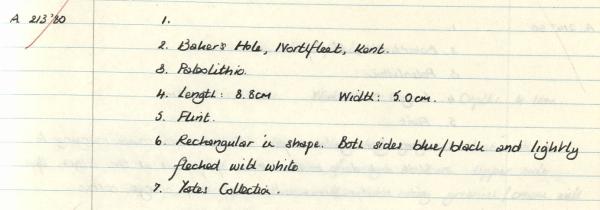 A 213'80
1.
2. Baker's Hole, Northfleet, Kent.
3. Palaeolithic.
4. Length: 8.8cm Width: 5.0cm.
5. Flint.
6. Rectangular in shape. Both sides blue/black and lightly
flecked with white
7. Yates Collection.